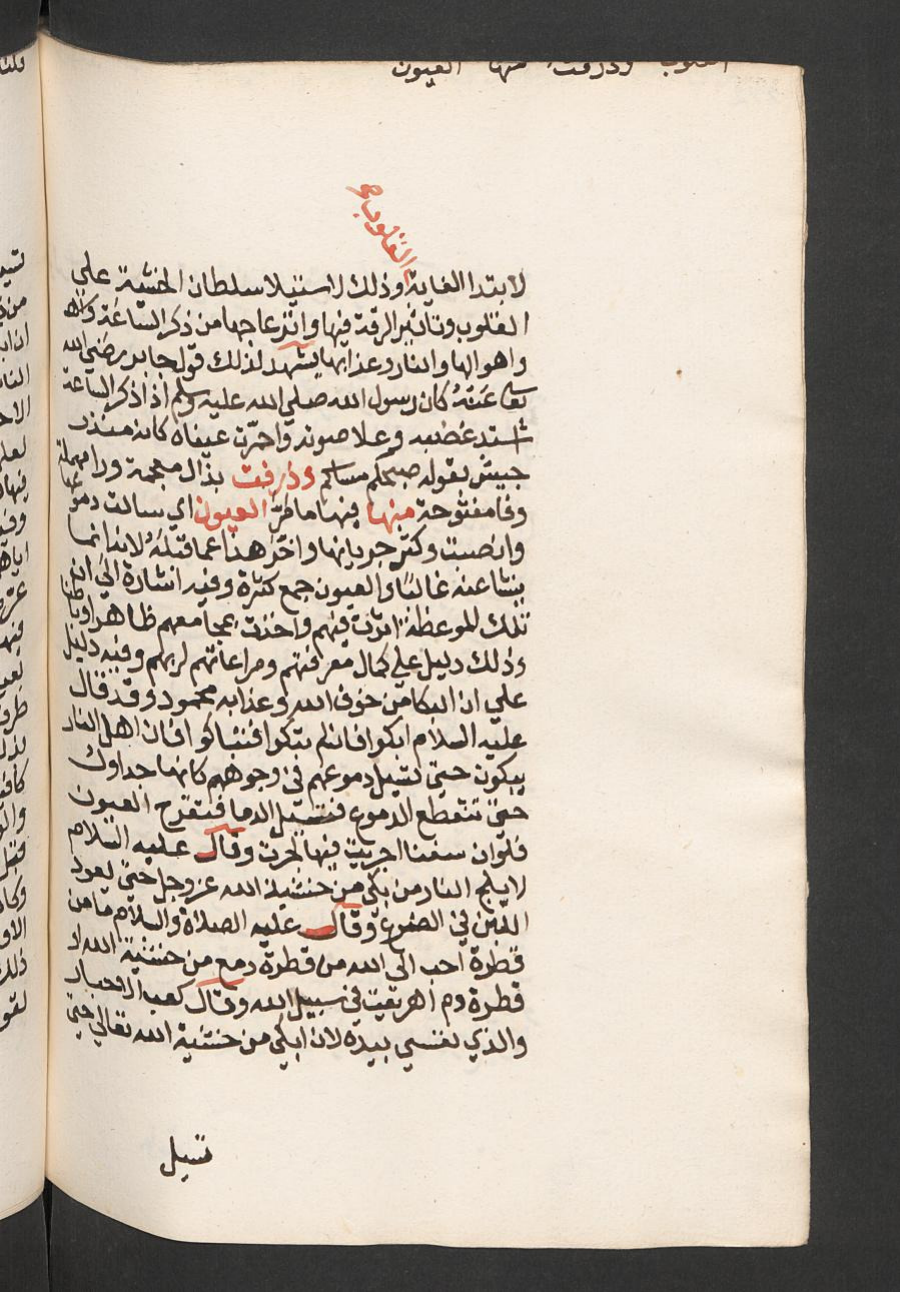 القلوب وذرفت منها العيون
القلوب
لابتدا الغاية وذلك لاستيلا سلطان الخشية علي
القلوب وتاثير الرقة فيها وانزعاجها من ذكر الساعة
واهوالها والنار وعذابها يشهد لذلك قول جابر رضي الله
عنه كان رسول الله صلي الله عليه وسلم اذا ذكر الساعة
اشتد غضبه وعلا صوته واحمرت عيناه كانه منذر
جيش بقوله صبحكم مساكم وذرفت بذال معجمة ورا مهملة
وفا مفتوحة منها فيها ما مر العيون اي سالت دموعها
وانصبت وكثر جريانها واخر هذا عما قبله لانه انما
ينشا عنه غالبا والعيون جمع كثرة وفيه اشارة الي ان
تلك الموعظة اثرت فيهم واخذت بمجامعهم ظاهرا وباطنا
وذلك دليل علي كمال معرفتهم ومراعاتهم لربهم وفيه دليل
علي ان البكا من خوف الله وعذابه محمود وقد قال
عليه السلام ابكوا فان لم تبكوا فتباكوا فان اهل النار
يبكون حتي تسيل دموعهم في وجوههم كانها جداول
حتي تنقطع الدموع فتسيل الدما فتقرح العيون
فلو ان سفنا اجريت فيها لجرت وقال عليه السلام
لا يلج النار من بكي من خشية الله عز وجل حتي يعود
اللبن في الضرع وقال عليه الصلاة والسلام ما من
قطرة احب الي الله من قطرة دمع من خشية الله او
قطرة دم اهريقت في سبيل الله وقال كعب الاحبار
والذي نفسي بيده لان ابكي من خشية الله تعالي حتي
تسيل